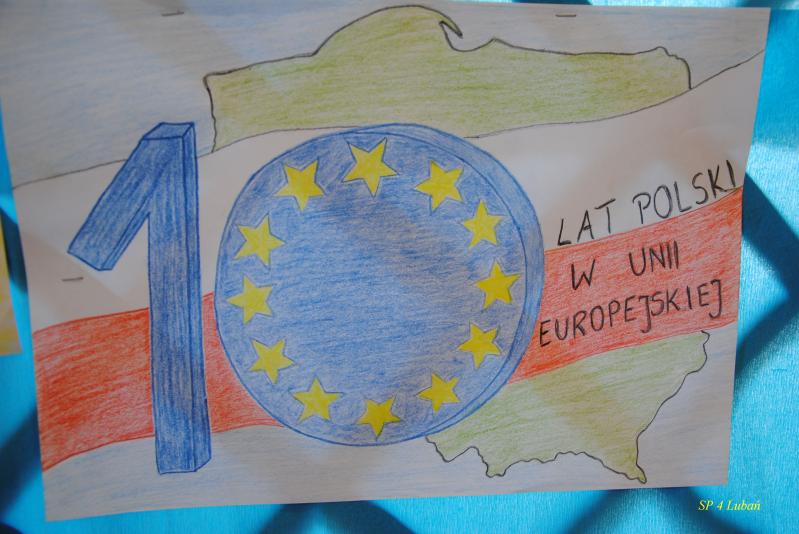 10
LAT POLSKI
W UNII
EUROPEJSKIEJ
SP 4 Lubań